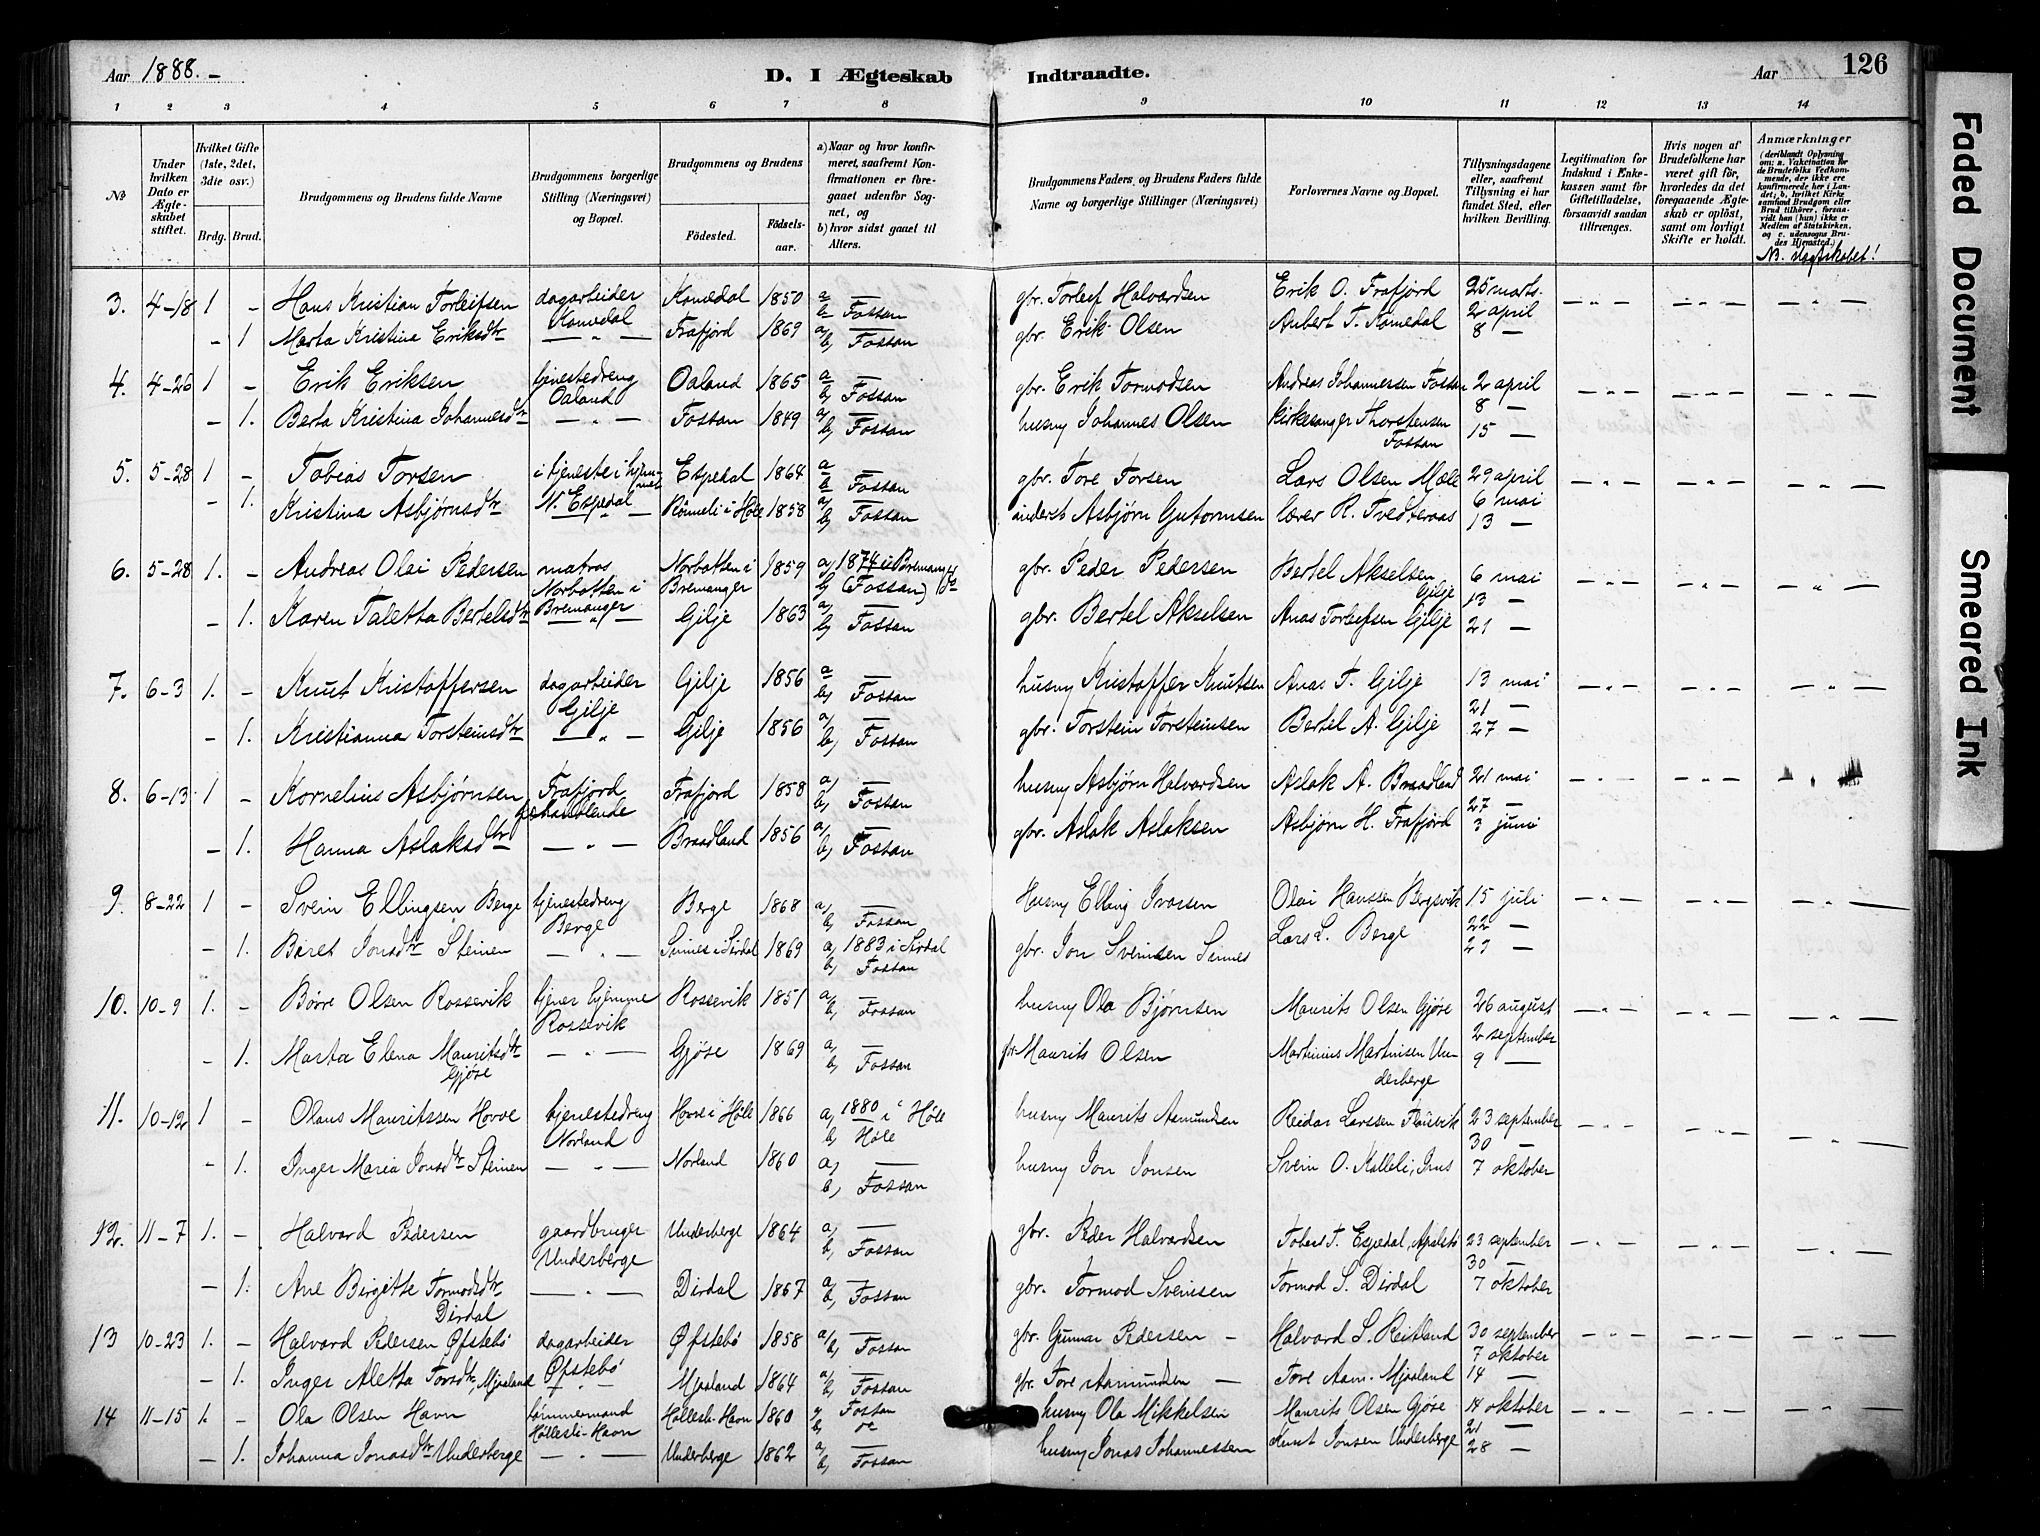 Aar 1888. –
D. I Ægteskab Indtraadte.
Aar 126
1 2 3 4 5 6 7 8 9 10 11 12 13 14
No
Under hvilken Dato er Ægteskabet stiftet.
Hvilket Gifte (1ste, 2det, 3die osv.)
Brdg. Brud.
Brudgommens og Brudens fulde Navne
Brudgommens borgerlige Stilling (Næringsvei) og Bopæl.
Brudgommens og Brudens
Fødested.
Fødselsaar.
a) Naar og hvor konfirmeret, saafremt Konfirmationen er foregaaet udenfor Sognet, og
b) hvor sidst gaaet til Alters.
Brudgommens Faders, og Brudens Faders fulde Navne og borgerlige Stillinger (Næringsvei)
Forlovernes Navne og Bopæl.
Tillysningsdagene eller, saafremt Tillysning ei har fundet Sted, efter hvilken Bevilling.
Legitimation for Indskud i Enkekassen samt for Giftetilladelse, forsaavidt saadan tiltrænges.
Hvis nogen af Brudefolkene har været gift før, hvorledes da det foregaaende Ægteskab er opløst, samt om lovligt Skifte er holdt.
Anmærkninger
(deriblandt Oplysning om: a. Vakcination for de Brudefolks Vedkommende, der ikke ere konfirmerede her i Landet; b. hvilket Kirkesamfund Brudgom eller Brud tilhører, forsaavidt han (hun) ikke er Medlem af Statskirken, og c. udensogns Brudes Hjemsted.)
3. 4-18 1 – Hans Kristian Torleifsen dagarbeider Komedal Komedal 1850 a — b Fossan gbr. Torleif Halvardsen Erik O. Frafjord 25 marts.
– 1 Marta Kristina Eriksdtr — " — Frafjord 1869 a, — b, Fossan gbr. Erik Olsen Anbert T. Komedal 2 april 8 —
4. 4-26 1 – Erik Eriksen tjenestedreng Oaland Oaland 1865 a — b, Fossan gbr. Erik Tormodsen Andreas Johannessen Fossan 2 april
– 1. Berta Kristina Johannesdtr — " — Fossan 1849 a, — b, Fossan husmy Johannes Olsen kirkesanger Thorstensen Fossan 8 — 15 —
5. 5-28 1 – Tobias Torsen i tjeneste i hjemmet N. Espedal Espedal 1864 a — b Fossan gbr. Tore Torsen Lars Olsen Mæle 29 april
– 1. Kristina Asbjørnsdtr — " — i Høle 1858 a, — b, Fossan Asbjørn Gutormsen lærer R. Tvedteraas 6 mai 13 —
6. 5-28 1. – Andreas Olai Pedersen matros Norbotten i Bremanger Norbotten i Bremanger 1859 a, 1874 i Bremanger b, (Fossan) gbr. Peder Pedersen Bertel Akselsen Gilje 6 mai 13 —
– 1. Karen Taletta Bertelsdtr — " — Gilje 1863 a, — b, Fossan gbr. Bertel Akselsen Anas Torleifsen Gilje 21 —
7. 6-3 1. – Knut Kristoffersen dagarbeider Gilje Gilje 1856 a — b, Fossan husmy Kristoffer Knutsen Anas T. Gilje 13 mai 21 —
– 1. Kristianna Torsteinsdtr — " — Gilje 1856 a, — b, Fossan gbr. Torstein Torsteinsen Bertel A. Gilje 27 —
8. 6-13 1 – Kornelius Asbjørnsen Frafjord Frafjord 1858 a, — b, Fossan husmy Asbjørn Halvardsen Aslak A. Braadland 21 mai 27 —
– 1. Hanna Aslaksdtr — " — Braadland 1856 a, — b, Fossan gbr. Aslak Aslaksen Asbjørn H. Frafjord 3 juni
9. 8-22 1 – Svein Ellingsen Berge tjenestedreng Berge Berge 1868 a, — b, Fossan Husmy Elling Ivarsen Olai Hanssen Bergevik 15 juli 22 —
– 1. Beret Jonsdtr Steinen — " — Sinnes i Sirdal 1869 a, 1883 i Sirdal b, Fossan gbr. Jon Sveinsen Sinnes Lars L. Berge 29 —
10. 10-9 1. – Børre Olsen Rossevik tjener hjemme Rossevik Rossevik 1851 a, — b, Fossan husmy Ola Bjørnsen Maurits Olsen Gjøse 26 august 2 september
– 1. Marta Elena Mauritsdtr Gjøse — " — Gjøse 1869 a, — b, Fossan gbr. Maurits Olsen Martinius Martinsen Underberge 9 —
11. 10-12 1 – Olaus Mauritssen Hovve tjenestedreng Norland Hovve i Høle 1866 a, 1880 i Høle b, Høle husmy Maurits Asmundsen Reidar Larssen 23 september 30 —
– 1. Inger Maria Jonsdtr Steinen — " — Norland 1860 a, — b, Fossan husmy Jon Jonsen Svein O. Kalleli, 7 oktober
12. 11-7 1. – Halvard Pedersen gaardbruger Underberge Underberge 1864 a, — b, Fossan gbr. Peder Halvardsen Tobias T. Espedal, 23 september 30 —
– 1. Ane Birgitte Tormodsdtr Dirdal — " — Dirdal 1867 a, — b, Fossan gbr. Tormod Sveinsen Tormod S. Dirdal 7 oktober
13 10-23 1. – Halvard Pedersen Øfstebø dagarbeider Øfstebø Øfstebø 1858 a, — b, Fossan gbr. Gunnar Pedersen – Halvard S. Reitland 30 september 7 oktober
– 1. Inger Aletta Torsdtr, Mjaaland — " — Mjaaland 1864 a, — b, Fossan gbr. Tore Aamundsen – Tore Aam. Mjaaland 14 —
14 11-15 1. – Ola Olsen Havn tømmermand Høllesli-Havn Høllesli-Havn 1860 a, Fossan b do husmy Ola Mikkelsen Maurits Olsen Gjøse 14 oktober 21 —
– 1. Johanna Jonasdtr Underberge — " — Underberge 1862 a, — b, Fossan husmy Jonas Johannessen Knut Jonsen Underberge 28 —
Faded Document
Smeared Ink